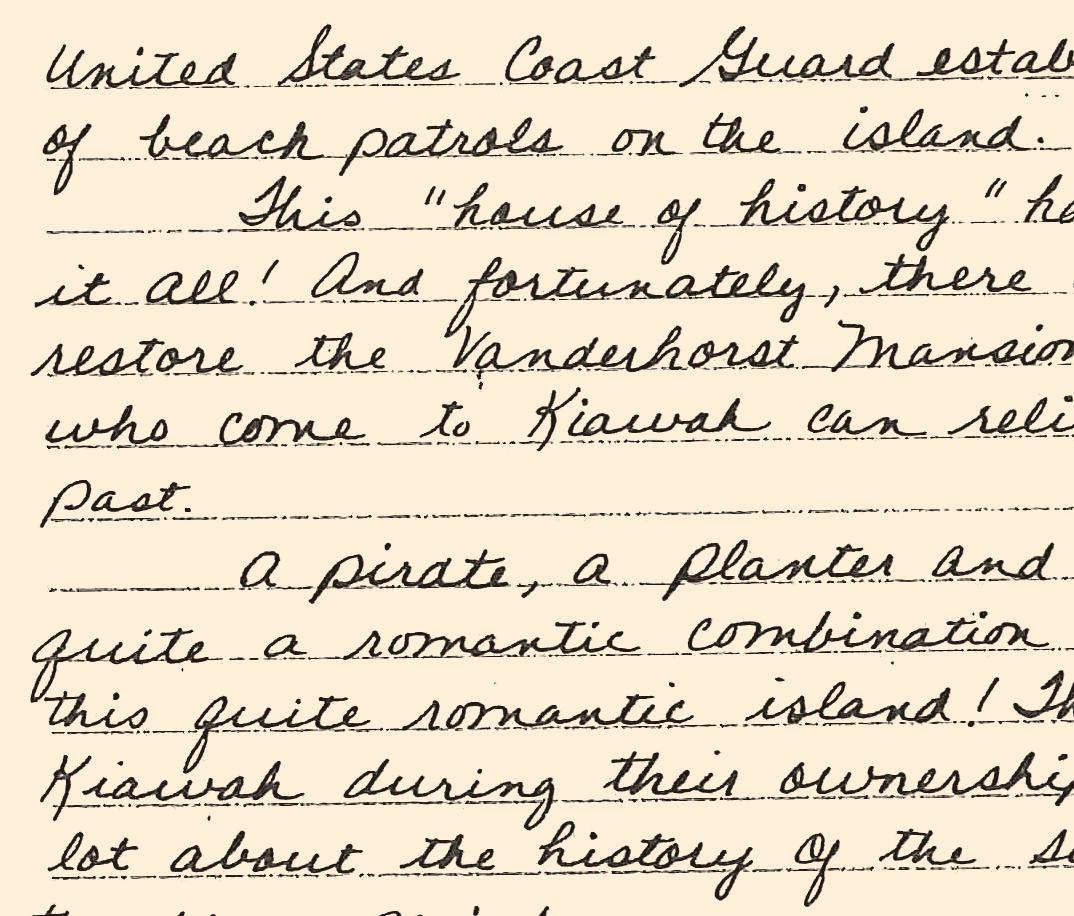 United States Coast Guard estab
of beach patrols on the island.
This "house of history" ha
it all! And fortunately, there
restore the Vanderhorst Mansion
who come to Kiawah can reli
past.
A pirate, a planter and
quite a romantic combination
this quite romantic island! Th
Kiawah during their ownership
lot about the history of the